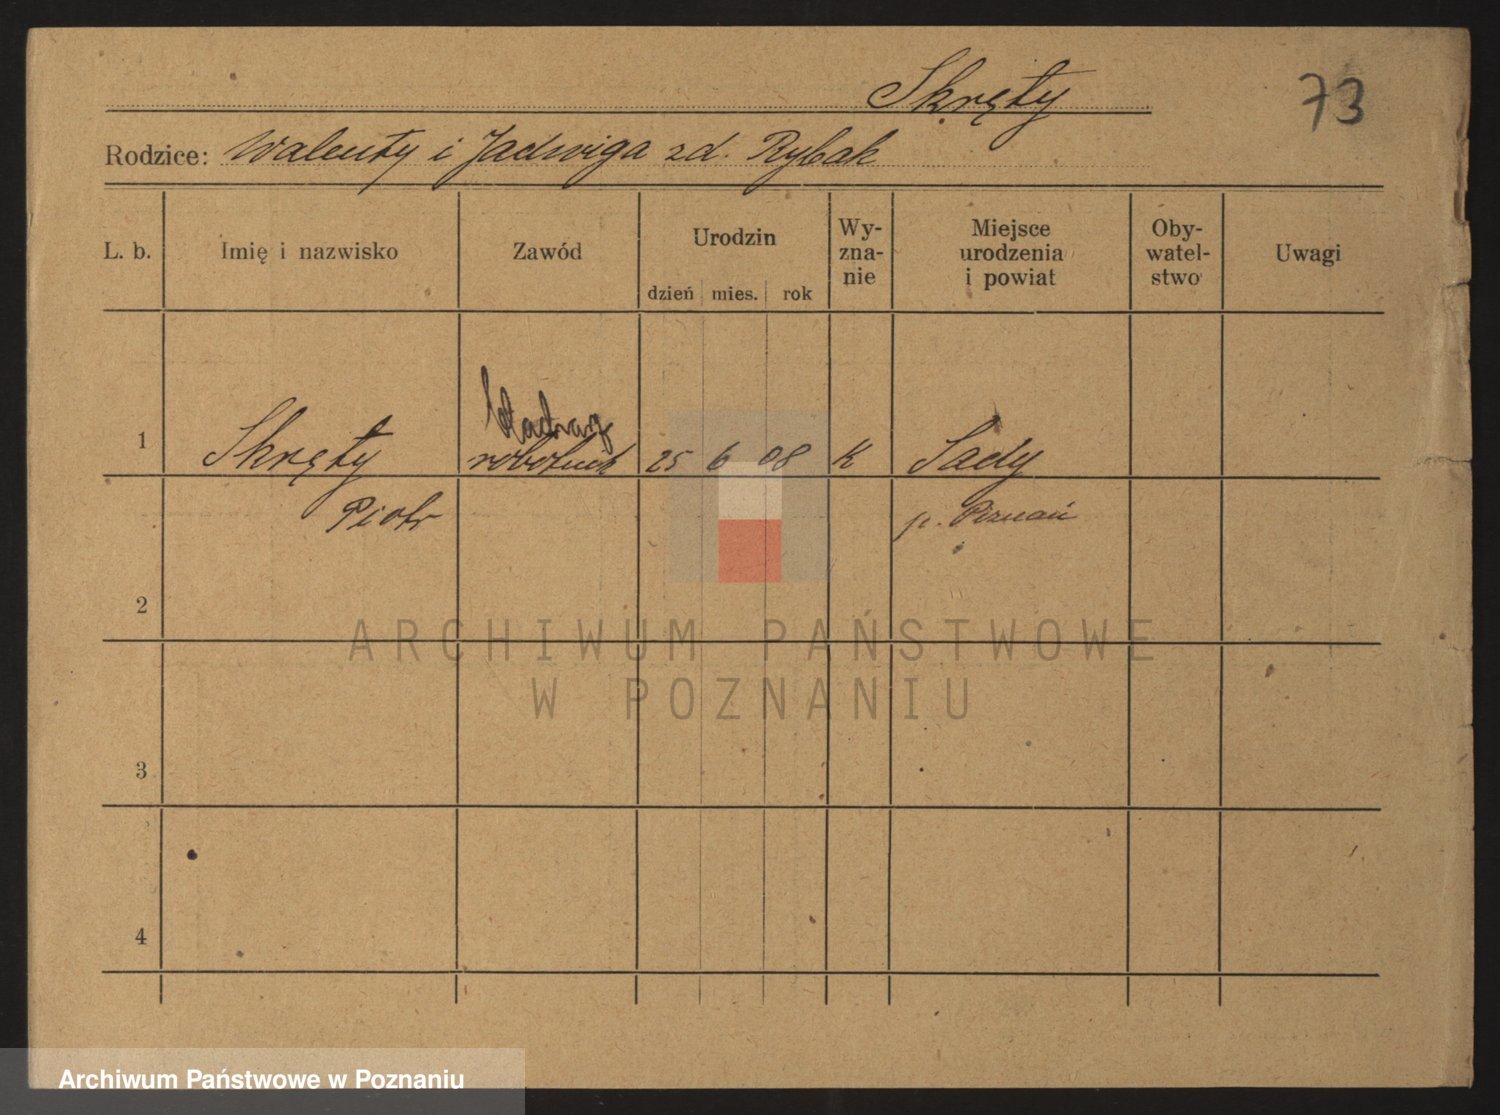 Skręty
73
Rodzice: Walenty i Jadwiga zd. Rybak
L. b. Imię i nazwisko Zawód Urodzin dzień mies. rok Wy-
zna-
nie Miejsce
urodzenia
i powiat Oby-
watel-
stwo Uwagi
1 Skręty robotnik 25 6 08 K Sady
Piotr p. Poznań
2
3
4
ARCHIWUM PAŃSTWOWE
W POZNANIU
Archiwum Państwowe w Poznaniu